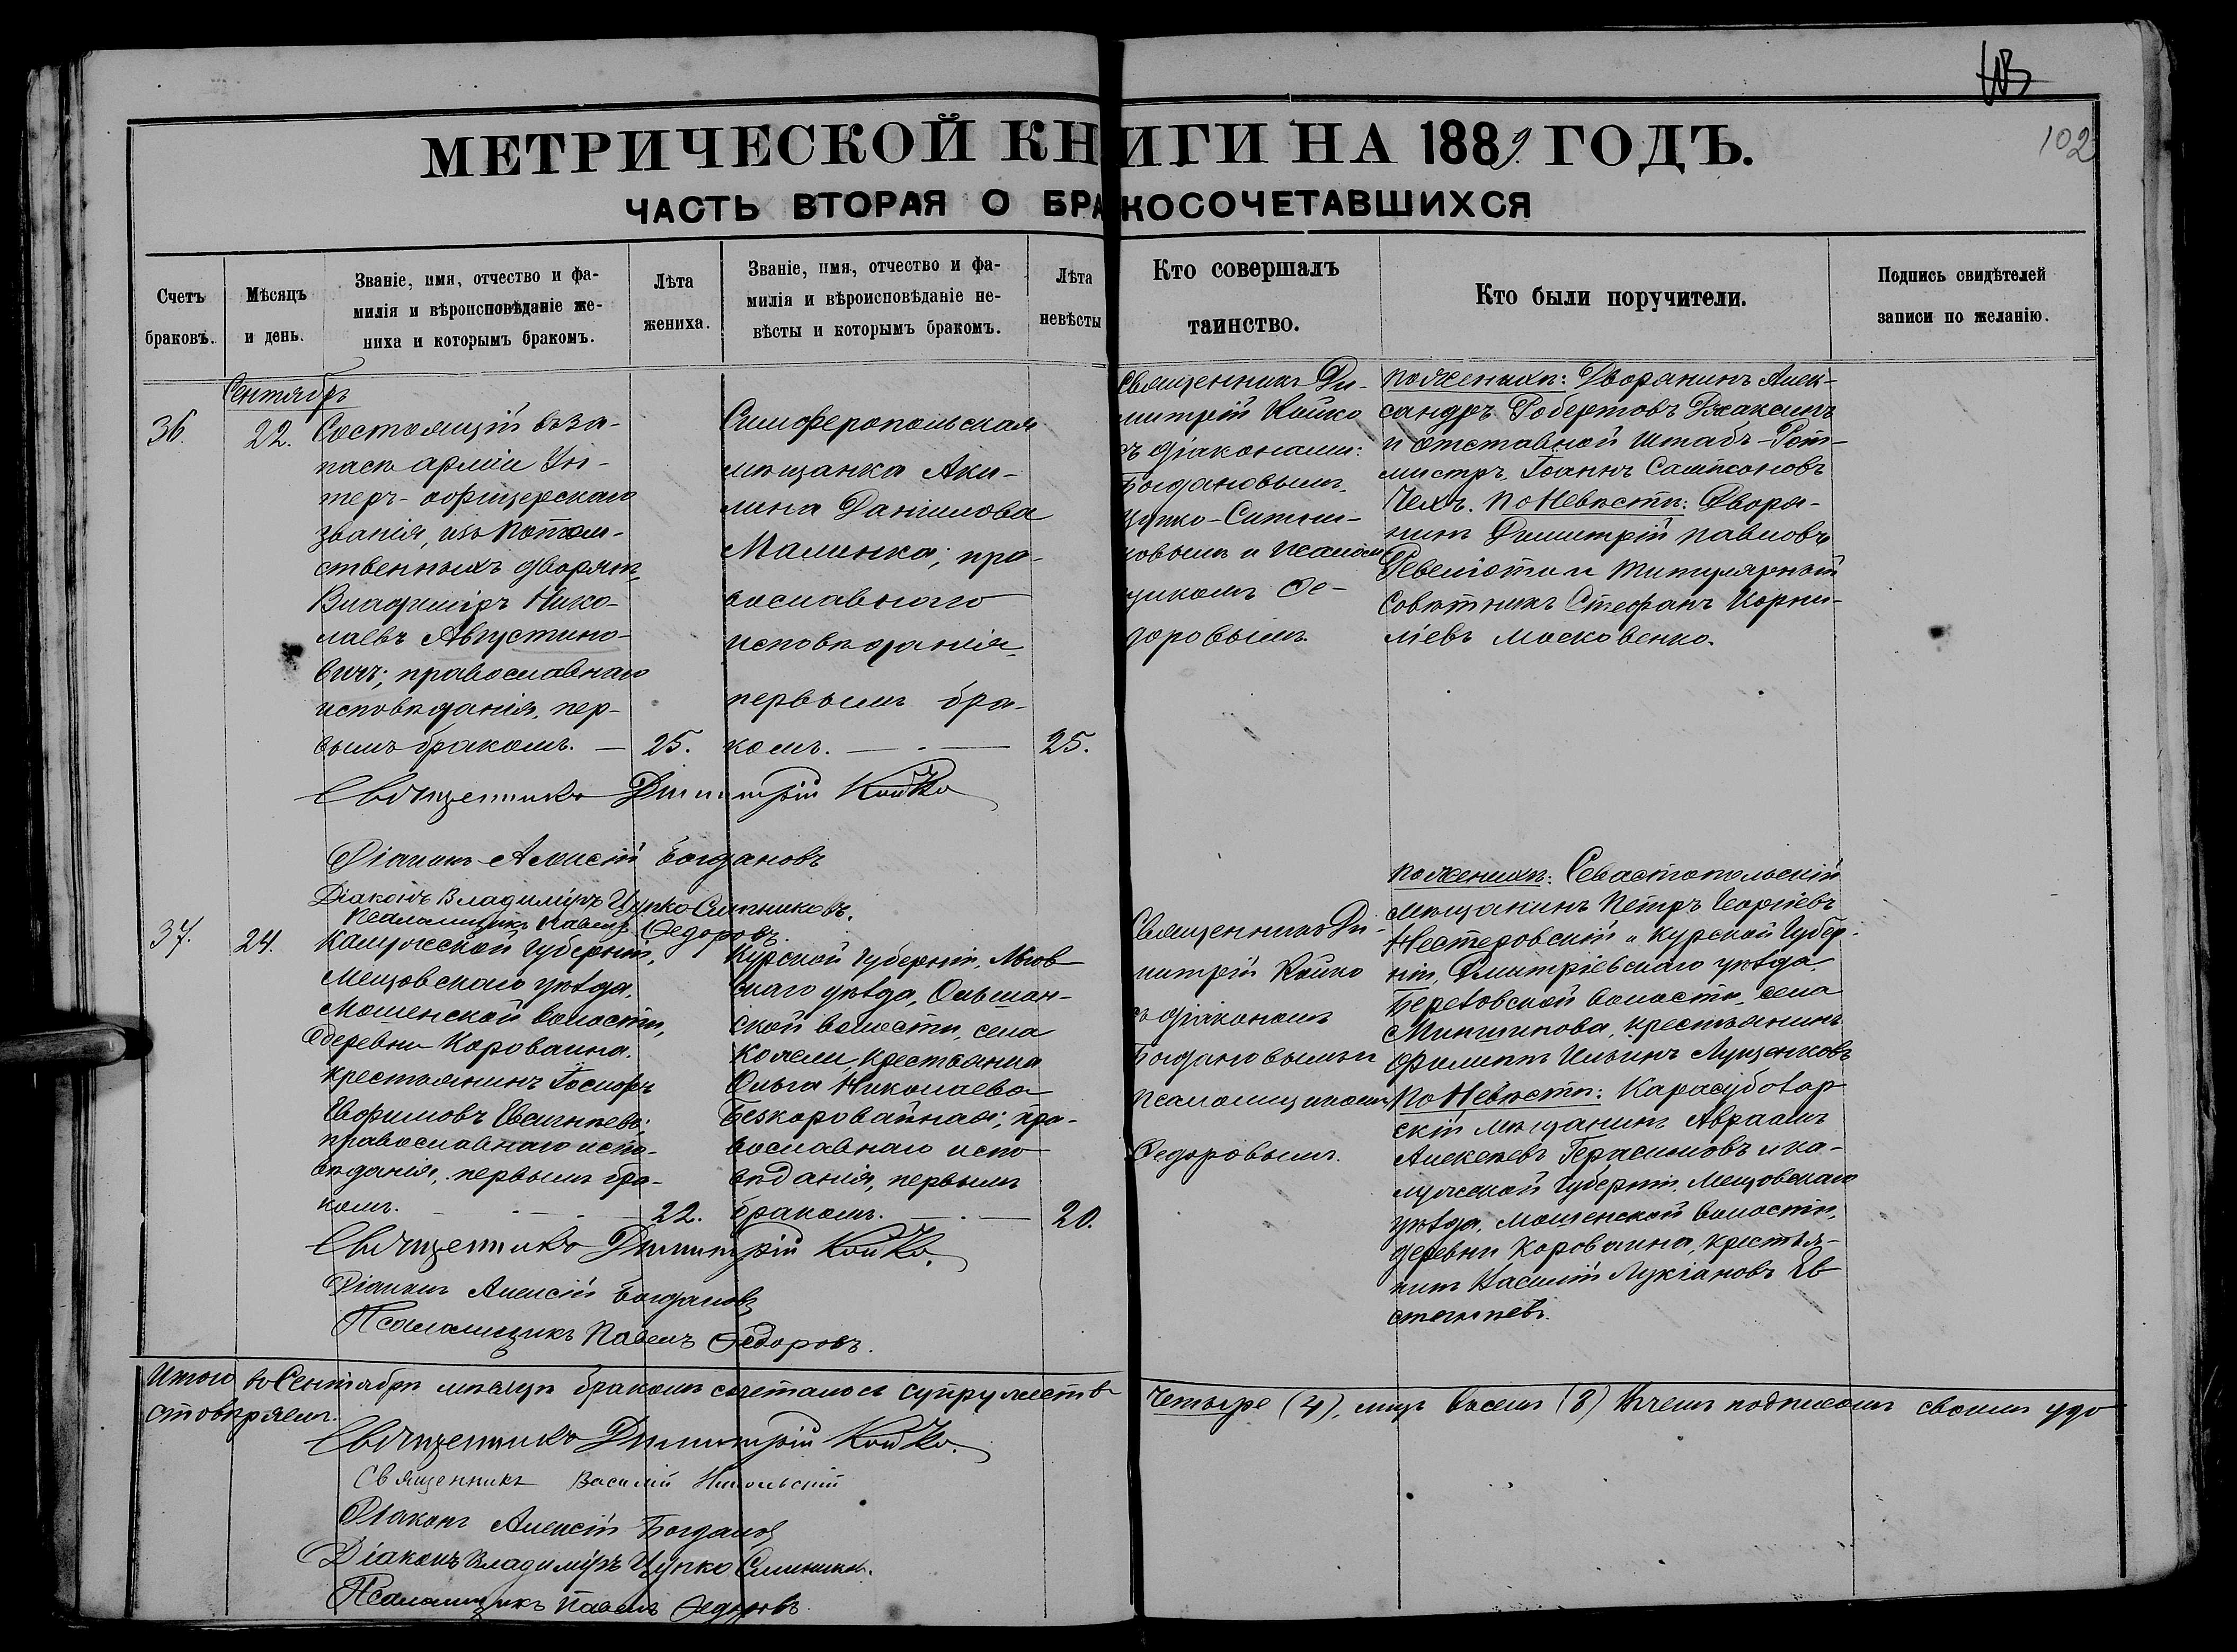 103
102
МЕТРИЧЕСКОЙ КНИГИ НА 1889 ГОДЪ.
ЧАСТЬ ВТОРАЯ О БРАКОСОЧЕТАВШИХСЯ
Счетъ
браковъ.
Мѣсяцъ
и день.
Званіе, имя, отчество и фа-
милія и вѣроисповѣданіе же-
ниха и которымъ бракомъ.
Лѣта
жениха.
Званіе, имя, отчество и фа-
милія и вѣроисповѣданіе не-
вѣсты и которымъ бракомъ.
Лѣта
невѣсты
Кто совершалъ
таинство.
Кто были поручители.
Подпись свидѣтелей
записи по желанію.
Сентябрь
36.
22.
Состоящій въ за-
пасѣ арміи Ун-
теръ-офицерскаго
званія, изъ потом-
ственныхъ дворянъ,
Владиміръ Нико-
лаевъ Августино-
вичъ; православнаго
исповѣданія, пер-
вымъ бракомъ. —
25.
Симферопольская
мѣщанка Аки-
лина Даніилова
Малинка; пра-
вославнаго
исповѣданія,
первымъ бра-
комъ. —
25.
Священникъ Ди-
митрій Койко
съ діаконами:
Богдановымъ,
Цупко-Ситни-
ковымъ и псалом
щикомъ Ѳе-
доровымъ.
По женихѣ: Дворянинъ Алек-
сандръ Робертовъ Джаксинъ
и отставной Штабъ-Рот-
мистръ Іоаннъ Сампсоновъ
Чехъ. По Невѣстѣ: Дворя-
нинъ Димитрій Павловъ
Ревеліоти и Титулярный
Совѣтникъ Стефанъ Корни-
ліевъ Московенко.
Священникъ Димитрій Койко
Діаконъ Алексій Богдановъ
Діаконъ Владиміръ Цупко-Ситниковъ.
Псаломщикъ Павелъ Ѳедоровъ.
37.
24.
Калужской Губерніи,
Мещовскаго уѣзда,
Мошенской волости,
деревни Короваина,
крестьянинъ Іосифъ
Евфимовъ Евстигнѣевъ;
православнаго испо-
вѣданія, первымъ бра-
комъ. —
22.
Курской Губерніи, Льгов
скаго уѣзда, Ольшан-
ской волости, села
крестьянка
Ольга Николаева
Безкоровайная; пра-
вославнаго испо
вѣданія, первымъ
бракомъ. —
20.
Священникъ Ди-
митрій Койко
съ діакономъ
Богдановымъ и
псаломщикомъ
Ѳедоровымъ.
По женихѣ: Севастопольскій
мѣщанинъ Петръ Георгіевъ
Нестеровскій и Курской Губер-
ніи, Дмитріевскаго уѣзда,
Березовской волости, села
крестьянинъ
Филиппъ Ильинъ Луценковъ
По Невѣстѣ: Карасубазар
скій мѣщанинъ Авраамъ
Алексѣевъ Герасимовъ и Ка-
лужской Губерніи, Мещовскаго
уѣзда, Мошенской волости,
деревни Короваина, крестья-
нинъ Василій Лукіановъ Ев
стигнѣевъ.
Священникъ Димитрій Койко.
Діаконъ Алексій Богдановъ
Псаломщикъ Павелъ Ѳедоровъ.
Итого въ Сентябрѣ мѣсяцѣ бракомъ сочеталось супружествъ
Четыре (4), лицъ восемь (8) въ чемъ подписомъ своимъ удо
стовѣряемъ.
Священникъ Димитрій Койко.
Священникъ Василій Никольскій
Діаконъ Алексій Богдановъ
Діаконъ Владиміръ Цупко Ситниковъ.
Псаломщикъ Павелъ Ѳедоровъ.